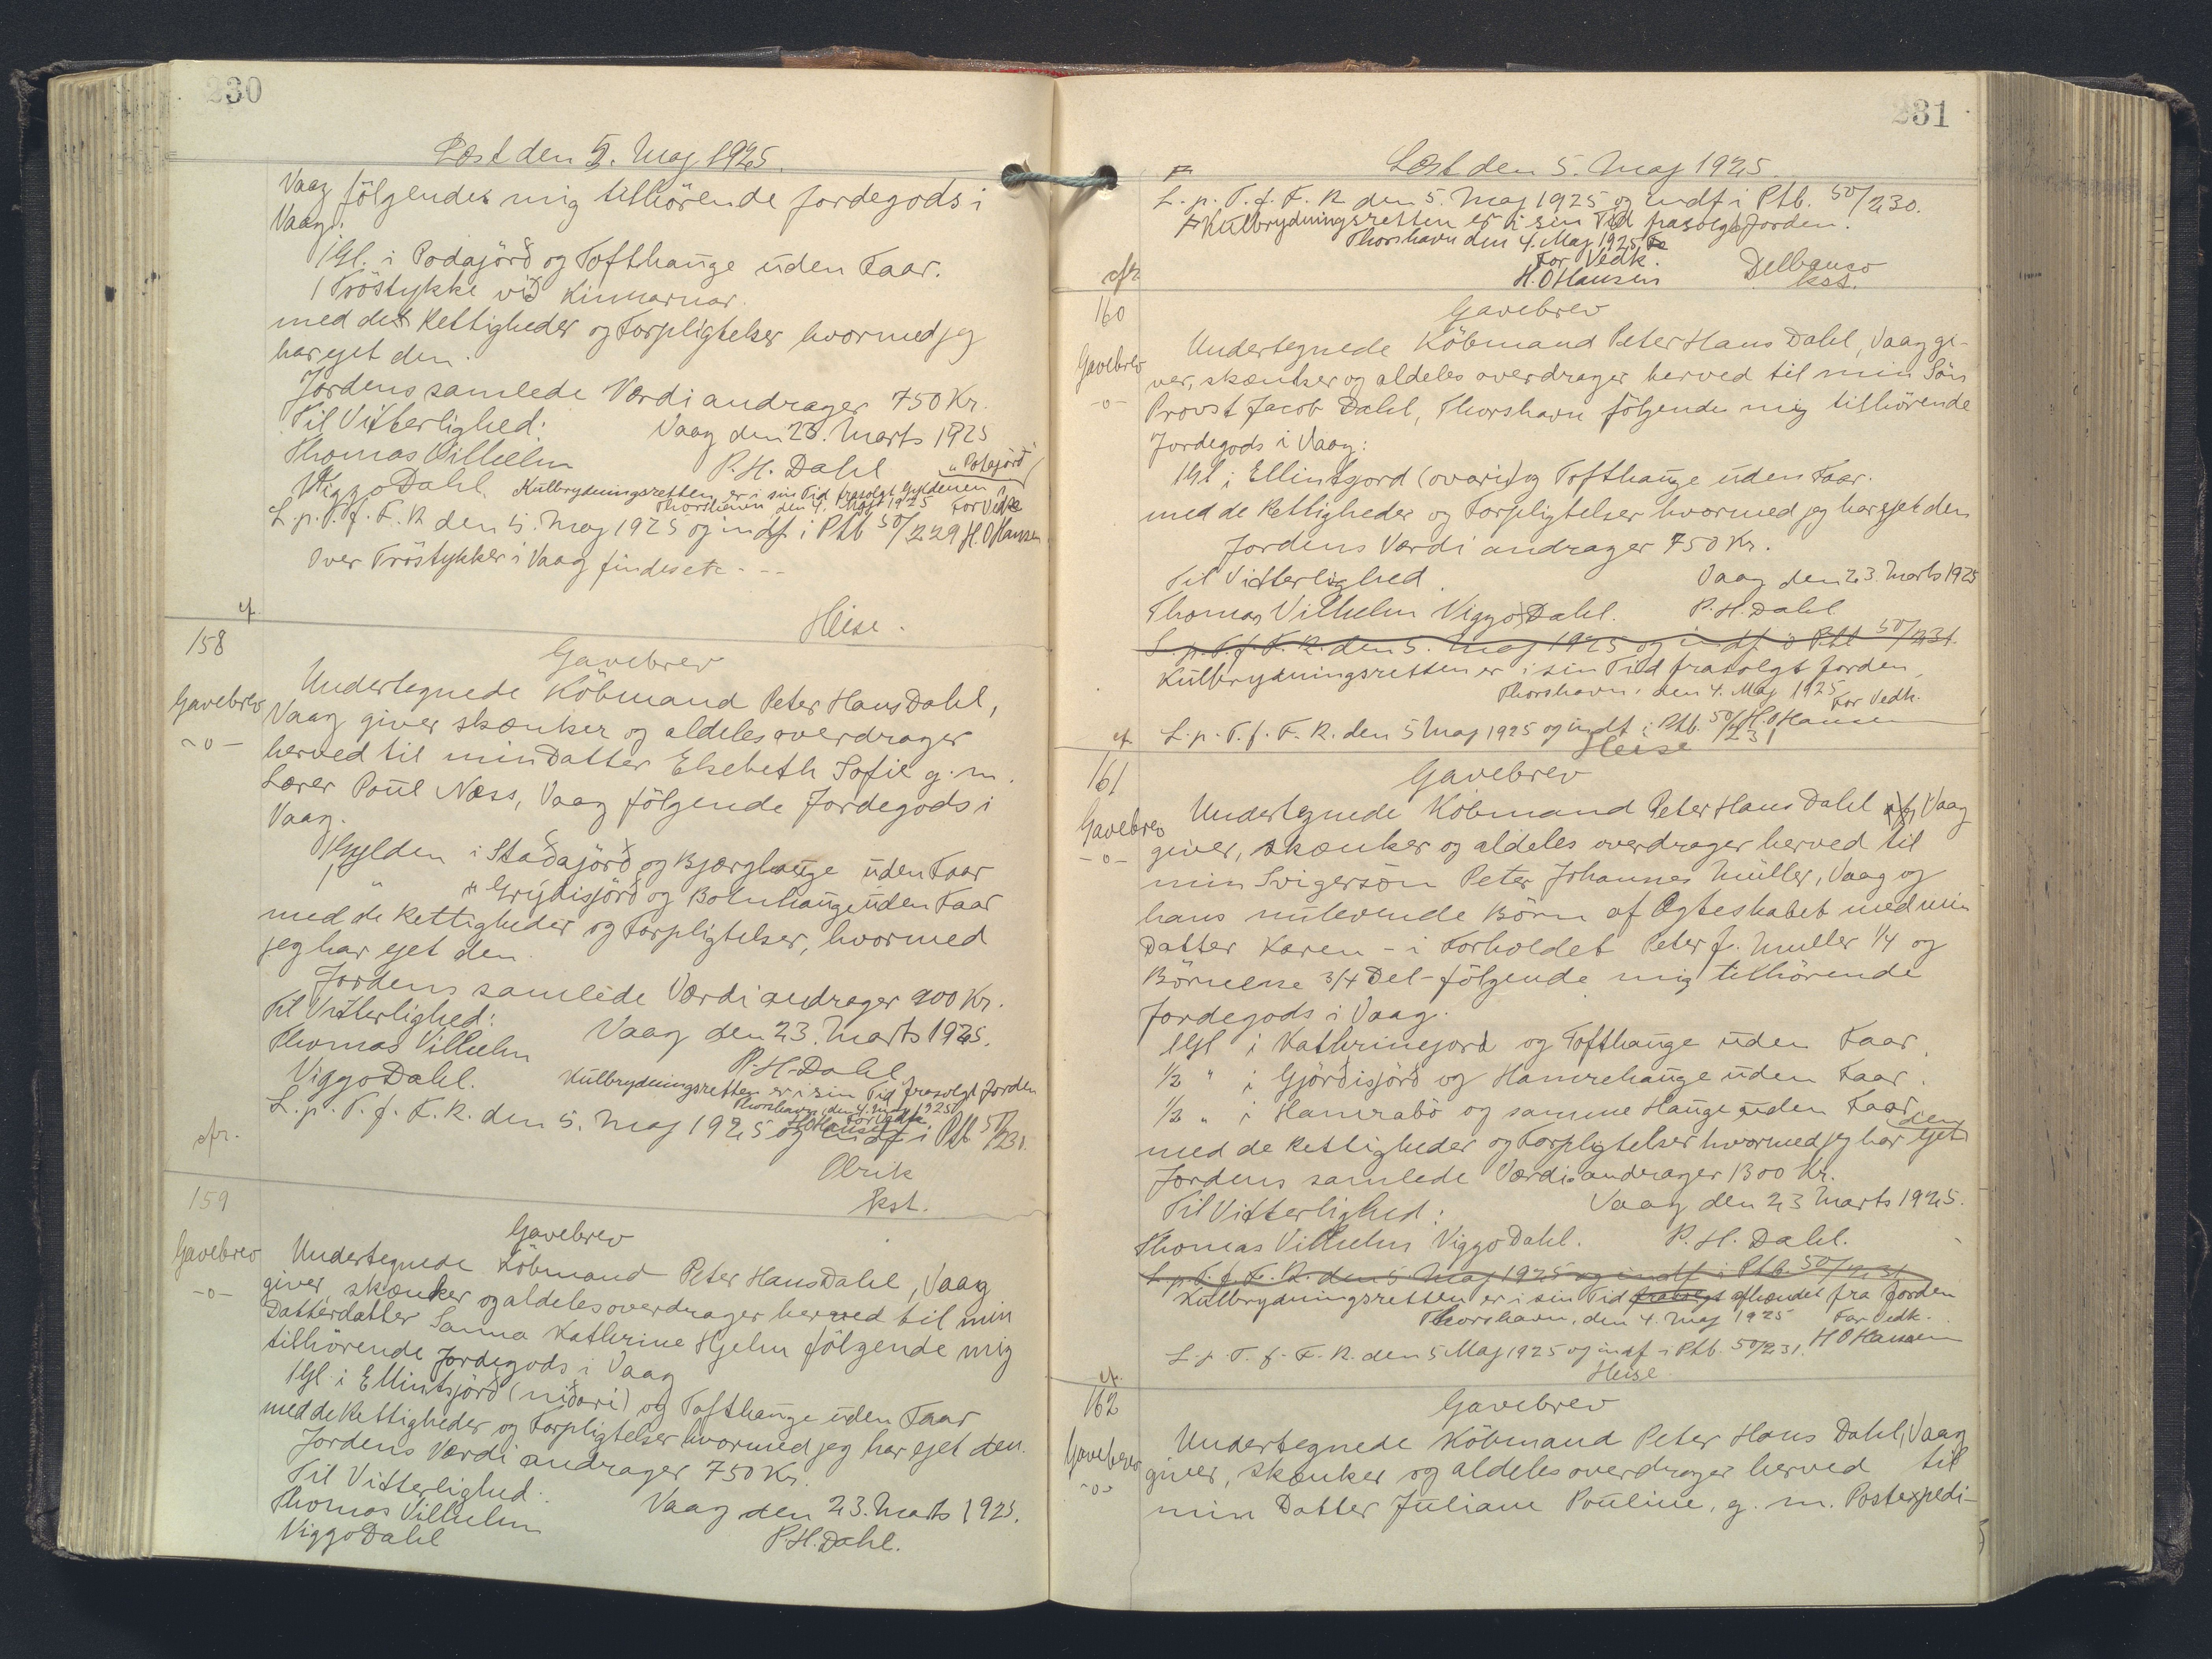 230
Læst den 5. Maj 1925.
Vaag følgende mig tilhörende Jordegods i
Vaag:
1 Gl. i Podajörð og Tofthauge uden Faar.
1 Tröstykke við Kinnarnar.
med de Rettigheder og Forpligtelser hvormed jeg
har ejet den.
Jordens samlede Værdi andrager 750 Kr.
Til Vitterlighed: Vaag den 23. Marts 1925
Thomas Vilhelm P. H. Dahl
Viggo Dahl. Kulbrydningsretten er i sin Tid frasolgt Gyldenen i Potajörð
Thorshavn den 4. Maj 1925 For Vedk
L. p. T. f. F. R. den 5. Maj 1925 og indf i Ptb 50/229 H. O Hansen
Over Tröstykker i Vaag findes etc - - -
cf. Heise.
158
Gavebrev
Gavebrev
-o-
Undertegnede Köbmand Peter Hans Dahl,
Vaag giver skænker og aldeles overdrager
herved til min Datter Elsebeth Sofie g. m.
Lærer Poul Næss, Vaag fölgende Jordegods i
Vaag.
1 Gylden i Staðajörð og Bjærghauge uden Faar
1 " " Grýðisjörð og Botnhauge uden Faar
med de Rettigheder og Forpligtelser, hvormed
jeg har ejet den.
Jordens samlede Værdi andrager 900 Kr.
Til Vitterlighed: Vaag den 23. Marts 1925.
Thomas Vilhelm P. H. Dahl
Viggo Dahl. Kulbrydningsretten er i sin Tid frasolgt Jorden
Thorshavn, den 4. Maj 1925
For Vedk.
H O Hansen
L. p. T. f. F. R. den 5. Maj 1925 og indf i Ptb. 50/230.
cfr. Ulrik
kst.
159
Gavebrev
Gavebrev
-o-
Undertegnede Köbmand Peter Hans Dahl, Vaag
giver, skænker og aldeles overdrager herved til min
Datterdatter Sanna Kathrine Hjelm fölgende mig
tilhörende Jordegods i Vaag
1 Gl. i Ellintsjörð (niðari) og Tofthauge uden Faar
med de Rettigheder og Forpligtelser hvormed jeg har ejet den.
Jordens Værdi andrager 750 Kr.
Til Vitterlighed.
Thomas Vilhelm Vaag den 23. Marts 1925.
Viggo Dahl P. H. Dahl.
231
Læst den 5. Maj 1925.
L. p. T. f. F. R den 5. Maj 1925 og indf i Ptb. 50/230.
Kulbrydningsretten er i sin Tid frasolgt Jorden.
Thorshavn den 4. Maj 1925
For Vedk.
H. O Hansen Delbanco
cfr kst.
160
Gavebrev
Gavebrev
-o-
Undertegnede Köbmand Peter Hans Dahl, Vaag gi-
ver, skænker og aldeles overdrager herved til min Sön
Provst Jacob Dahl, Thorshavn fölgende mig tilhörende
Jordegods i Vaag:
1 Gl i Ellintgord (ovari) og Tofthauge uden Faar.
med de Rettigheder og Forpligtelser hvormed jeg har ejet den
Jordens Værdi andrager 750 Kr.
Til Vitterlighed. Vaag den 23. Marts 1925
Thomas Vilhelm Viggo Dahl. P. H. Dahl
L. p. T. f. F. R. den 5. Maj 1925 og indf i Ptb 50/231.
Kulbrydningsretten er i sin Tid frasolgt Jorden
Thorshavn, den 4. Maj 1925
For Vedk.
L. p. T. f. F. R. den 5 Maj 1925 og indf i Ptb. 50/231 H. O Hansen
cf. Heise
161
Gavebrev
Gavebrev
-o-
Undertegnede Köbmand Peter Hans Dahl af Vaag
giver, skænker og aldeles overdrager herved til
min Svigersön Peter Johannes Müller, Vaag og
hans nulevende Börn af Ægteskabet med min
Datter Karen - i Forholdet Peter J. Müller 1/4 og
Börnene 3/4 Del - fölgende mig tilhörende
Jordegods i Vaag.
1 Gl i Kathrinejord og Tofthauge uden Faar,
1/2 " i Gjörðisjörð og Hamrehauge uden Faar.
1/2 " i Hamrabö og samme Hauge uden Faar
med de Rettigheder og Forpligtelser hvormed jeg har ejet den
Jordens samlede Værdi andrager 1300 Kr.
Til Vitterlighed: Vaag den 23 Marts 1925.
Thomas Vilhelm Viggo Dahl. P. H. Dahl.
L. p. T. f. F. R. den 5. Maj 1925 og indf i Ptb. 50/231
Kulbrydningsretten er i sin Tid frasolgt afhændet fra Jorden
Thorshavn, den 4. Maj 1925 For Vedk.
L. p. T. f. F. R. den 5 Maj 1925 og indf i Ptb. 50/231. H O Hansen
cf. Heise.
162
Gavebrev
Gavebrev
-o-
Undertegnede Köbmand Peter Hans Dahl, Vaag
giver, skænker og aldeles overdrager herved til
min Datter Juliane Pouline, g. m. Postexpedi-